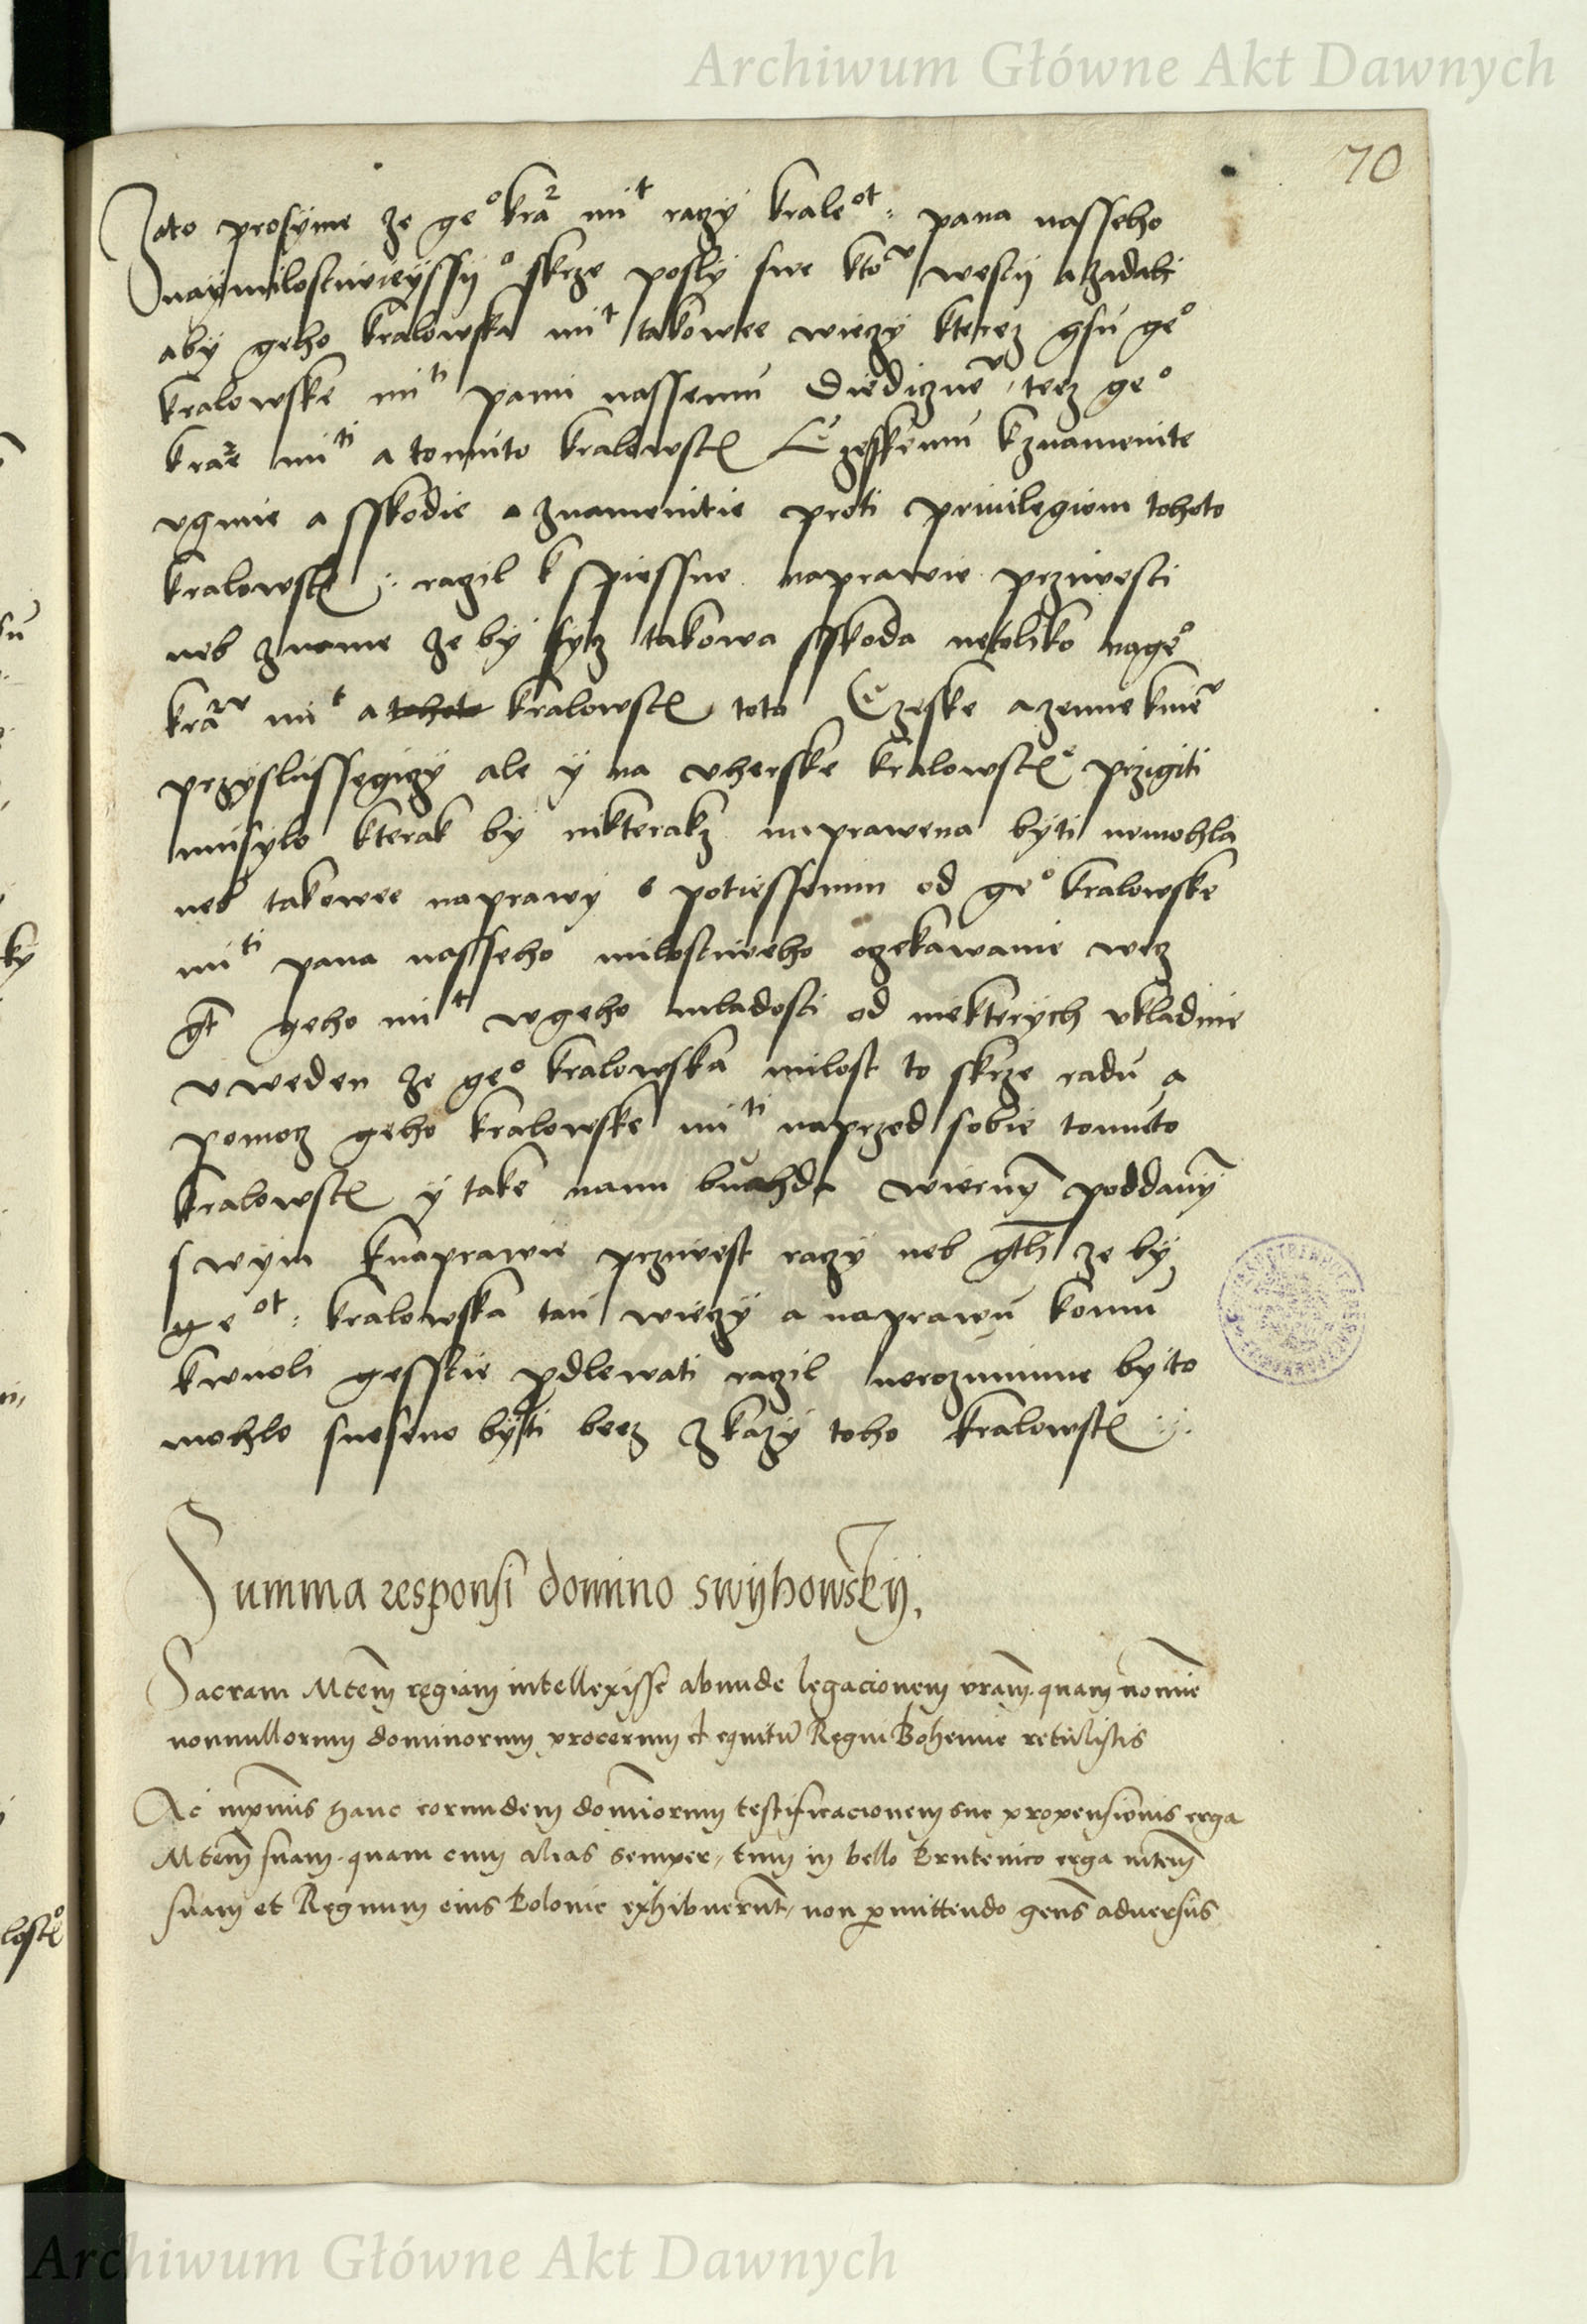 Archiwum Główne Akt Dawnych
70
Zato prosyme ze ge° kra² mit razy krale ot : pana nasseho
naymilostiwieyssy° skrze posly swe kto westy a zadati
aby geho kralowska mit takowee wieczy kterez gsu ge°
kralowske miti panu nassemu diediczne teez ge°
krare miti a tomuto kralowst Czeskemu kznamenite
vgmie a sskodie a znamenitie proti priuilegiom tohoto
kralowst : razil k spiessne naprawie przivesti
neb zname ze by sycz takowa sskoda netoliko nage°
kra mit a tohoto kralowst toto Czeske a zemie kniem
przyslussegiczy ale y na vherske kralowst przigiti
musylo kterak by nikterakz naprawena byti nemohla
neb takowee naprawy s potiessenim od ge° kralowske
miti pana nasseho milostiweho oczekawame wez
gt geho mit w geho mladosti od niekterych vkladnie
vweden ze ge° kralowska milost to skrze radu a
pomocz geho kralowske miti naprzed sobie tomuto
kralowst y take nam wiernym poddany
swym knaprawie przivest razy neb ze by
ge ot : kralowska tau wieczy a naprawu komu
kwuoli gesstie pdlewati razil nerozumime by to
mohlo sneseno byti beez zkazy toho kralowst :
Summa responsi domino swyhowsky.
Sacram Mtem regiam intellexisse abunde legacionem vram quam nomine
nonnullorum dominorum procerum et equitu Regni Bohemie retulistis
Ac inprimis hanc eorundem dominorum testificacionem sue propensionis erga
Mtem suam quam cum alias semper, tum in bello Prutenico erga mtem
suam et Regnum eius Polonie exhibuerunt, non permittendo gens aduersus
Archiwum Główne Akt Dawnych